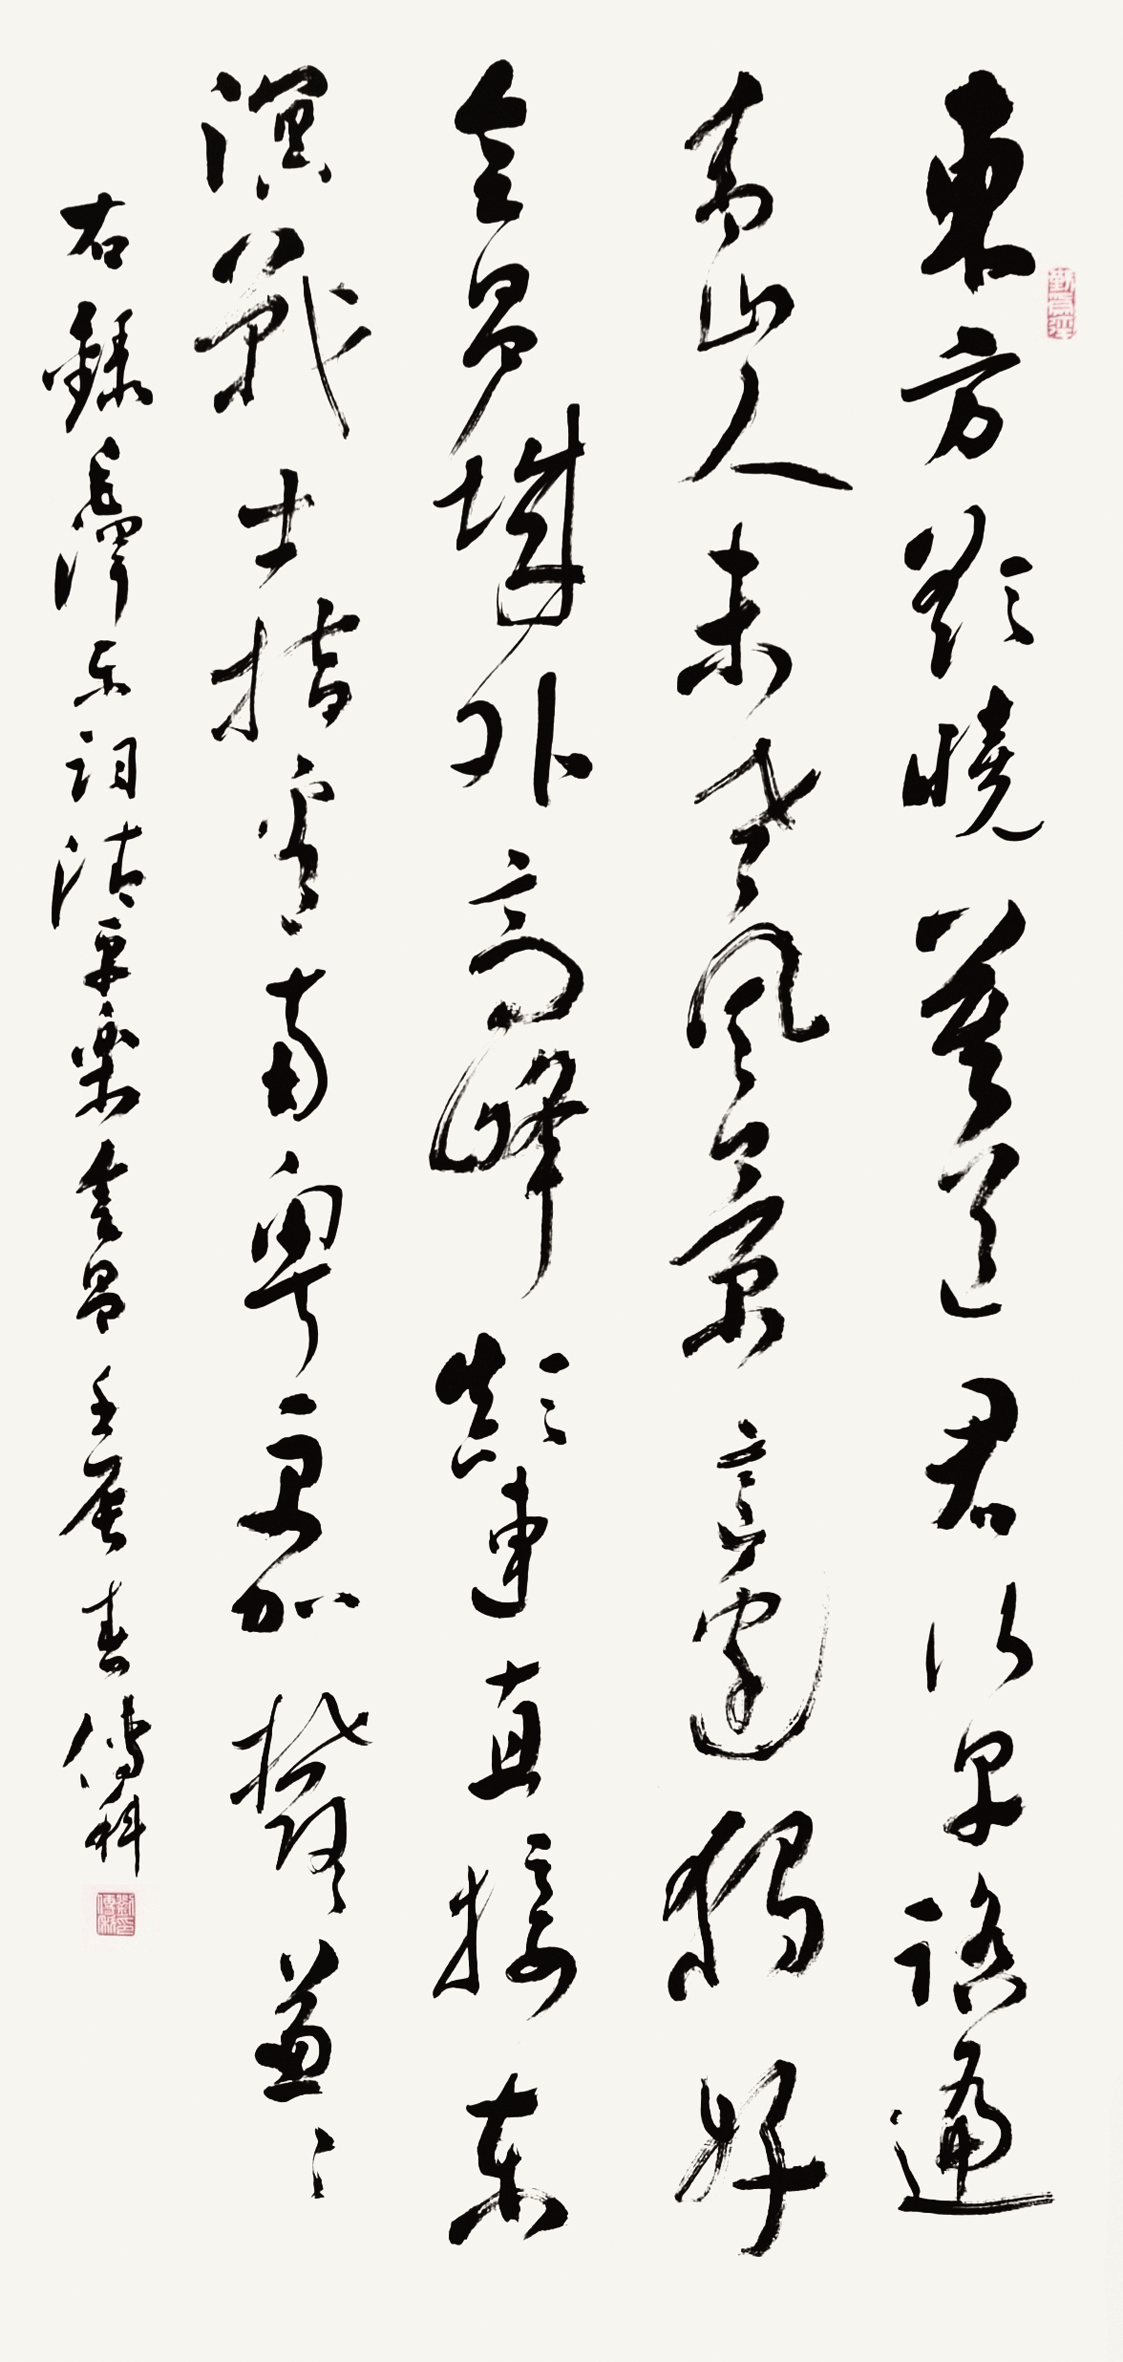 東方欲曉莫道君行早踏遍
青山人未老風景這邊獨好
会昌城外高峰顛連直接东
溟戰士指看南粵更加鬱〻葱〻
右錄毛澤东詞清平樂会昌壬辰春傳科